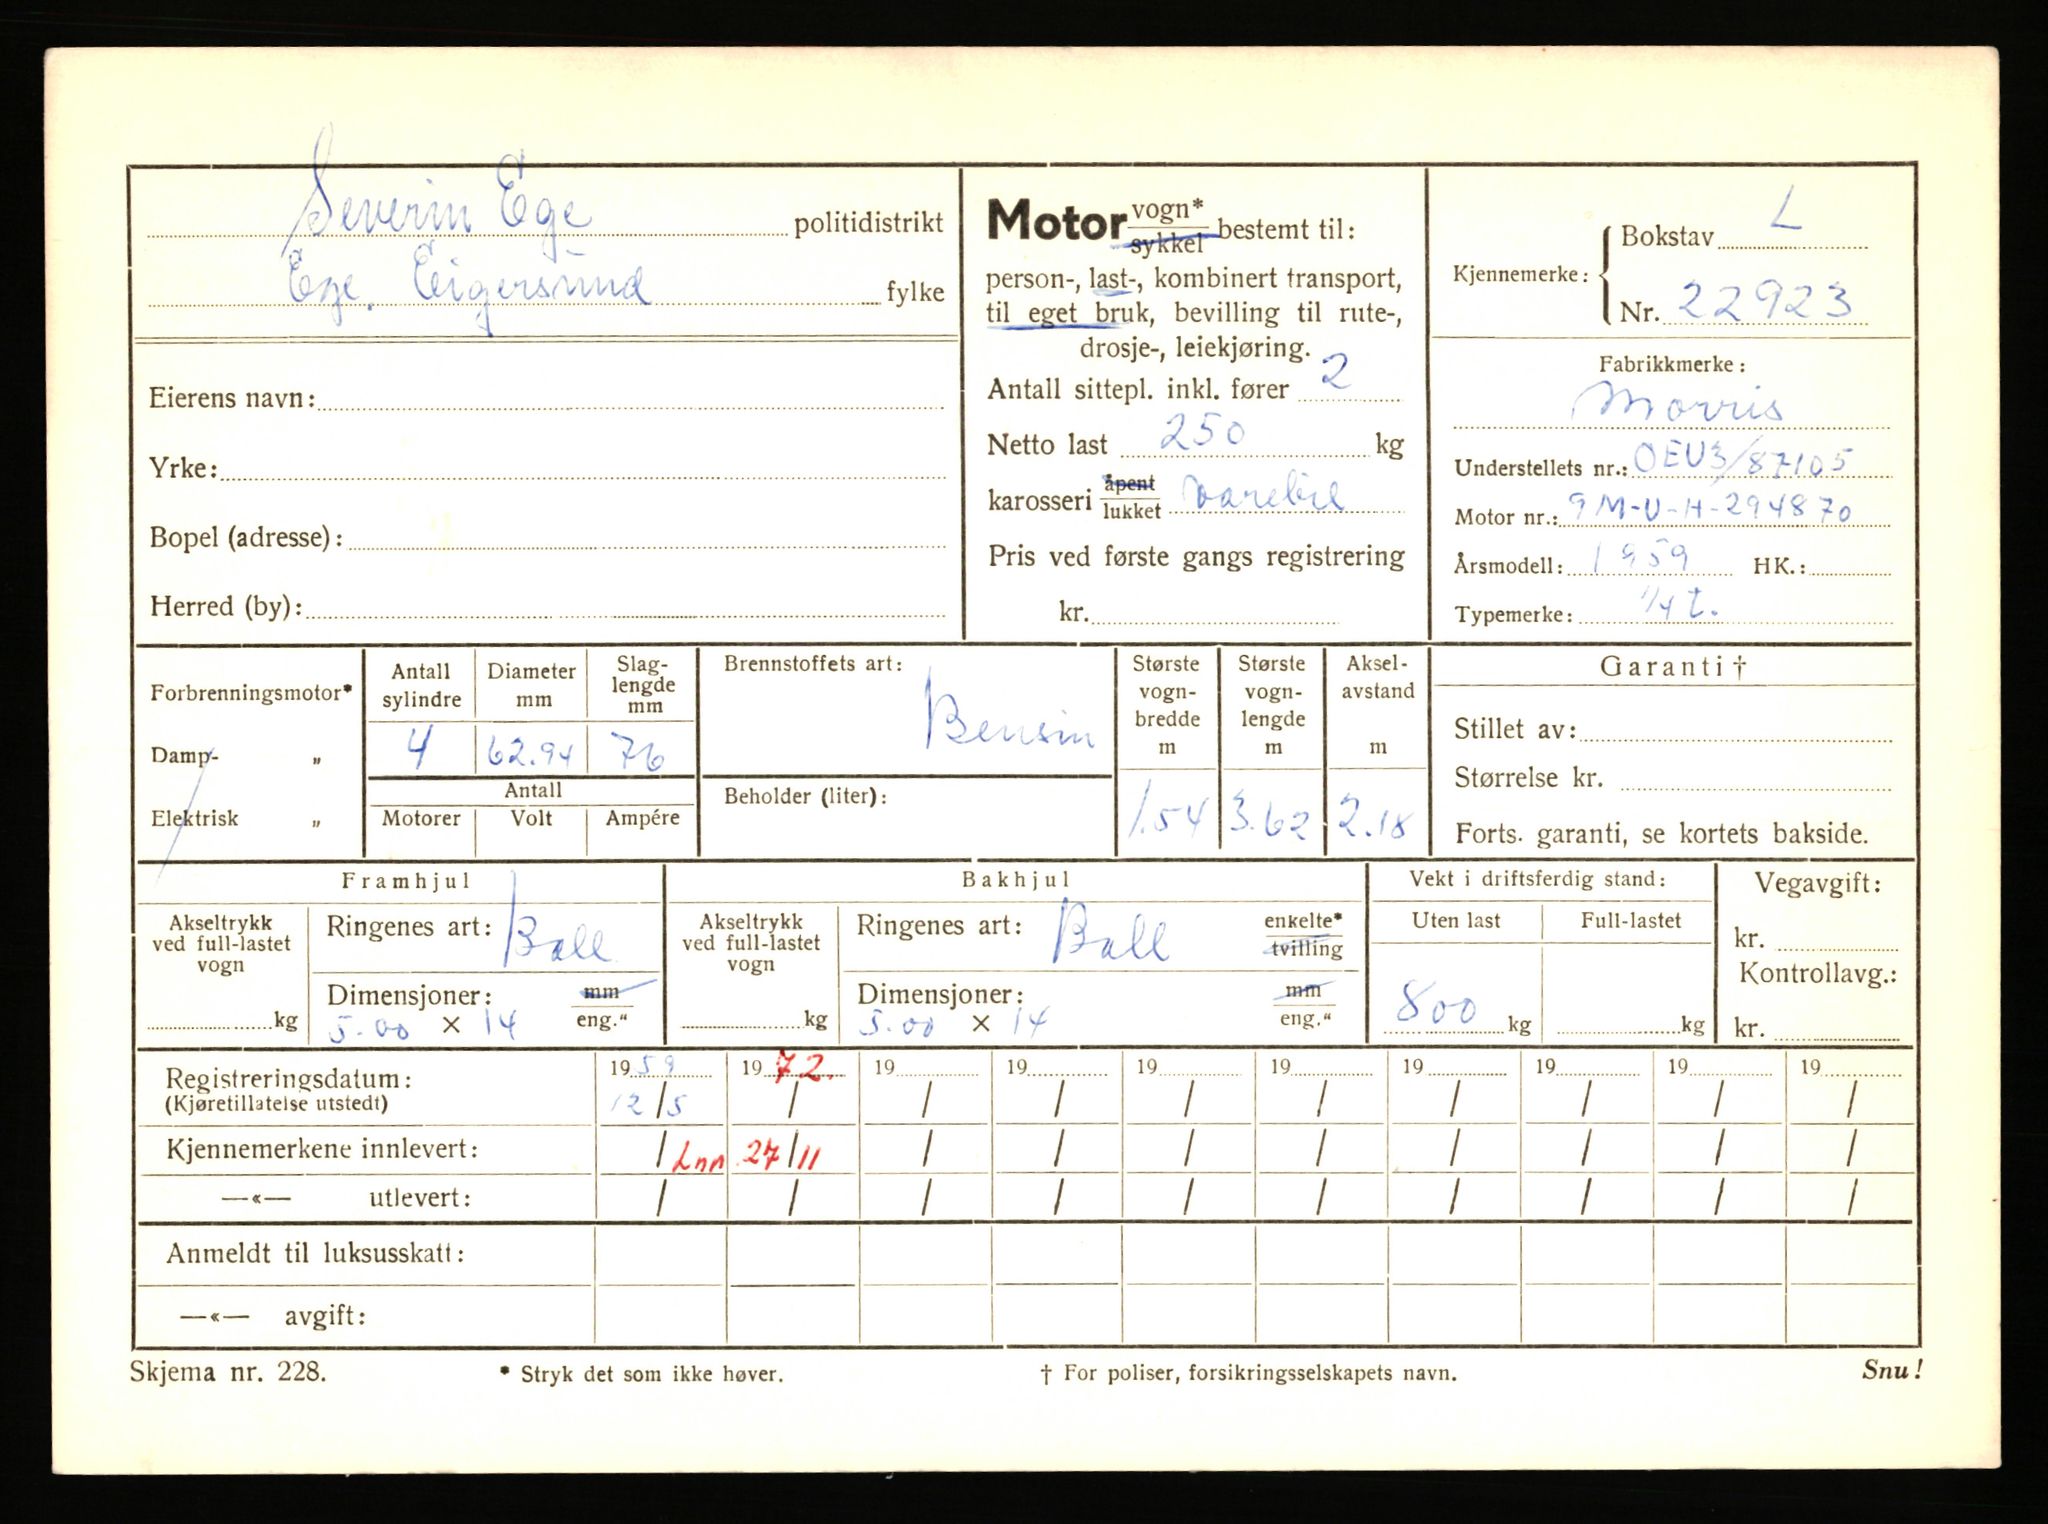 Severin Ege politidistrikt
Ege. Eigersund fylke
Eierens navn:
Yrke:
Bopel (adresse):
Herred (by):
Motor vogn* sykkel bestemt til:
person-, last-, kombinert transport,
til eget bruk, bevilling til rute-,
drosje-, leiekjøring.
Antall sittepl. inkl. fører 2
Netto last 250 kg
karosseri åpent lukket varebil
Pris ved første gangs registrering
kr.
Kjennemerke: Bokstav L
Nr. 22923
Fabrikkmerke:
Morris
Understellets nr.: OEU3/87105
Motor nr.: 9M-U-H-294870
Årsmodell: 1959 HK.:
Typemerke: 1/4 t.
Forbrenningsmotor*
Damp- „
Elektrisk „
Antall sylindre 4
Diameter mm 62.94
Slag-lengde mm 76
Antall
Motorer Volt Ampére
Brennstoffets art: Bensin
Beholder (liter):
Største vogn-bredde m 1.54
Største vogn-lengde m 3.62
Aksel-avstand m 2.18
Garanti †
Stillet av:
Størrelse kr.
Forts. garanti, se kortets bakside.
Framhjul
Akseltrykk ved full-lastet vogn
kg
Ringenes art: Ball
Dimensjoner: mm eng."
5.00 × 14
Bakhjul
Akseltrykk ved full-lastet vogn
kg
Ringenes art: Ball enkelte* tvilling
Dimensjoner: mm eng."
5.00 × 14
Vekt i driftsferdig stand:
Uten last Full-lastet
800 kg kg
Vegavgift:
kr.
Kontrollavg.:
kr.
Registreringsdatum: 1959 1972. 19 19 19 19 19 19 19 19
(Kjøretillatelse utstedt) 12/5 / / / / / / / / /
Kjennemerkene innlevert: / Lnn 27/11 / / / / / / / /
—«— utlevert: / / / / / / / / / /
Anmeldt til luksusskatt:
—«— avgift:
Skjema nr. 228. * Stryk det som ikke høver. † For poliser, forsikringsselskapets navn. Snu!